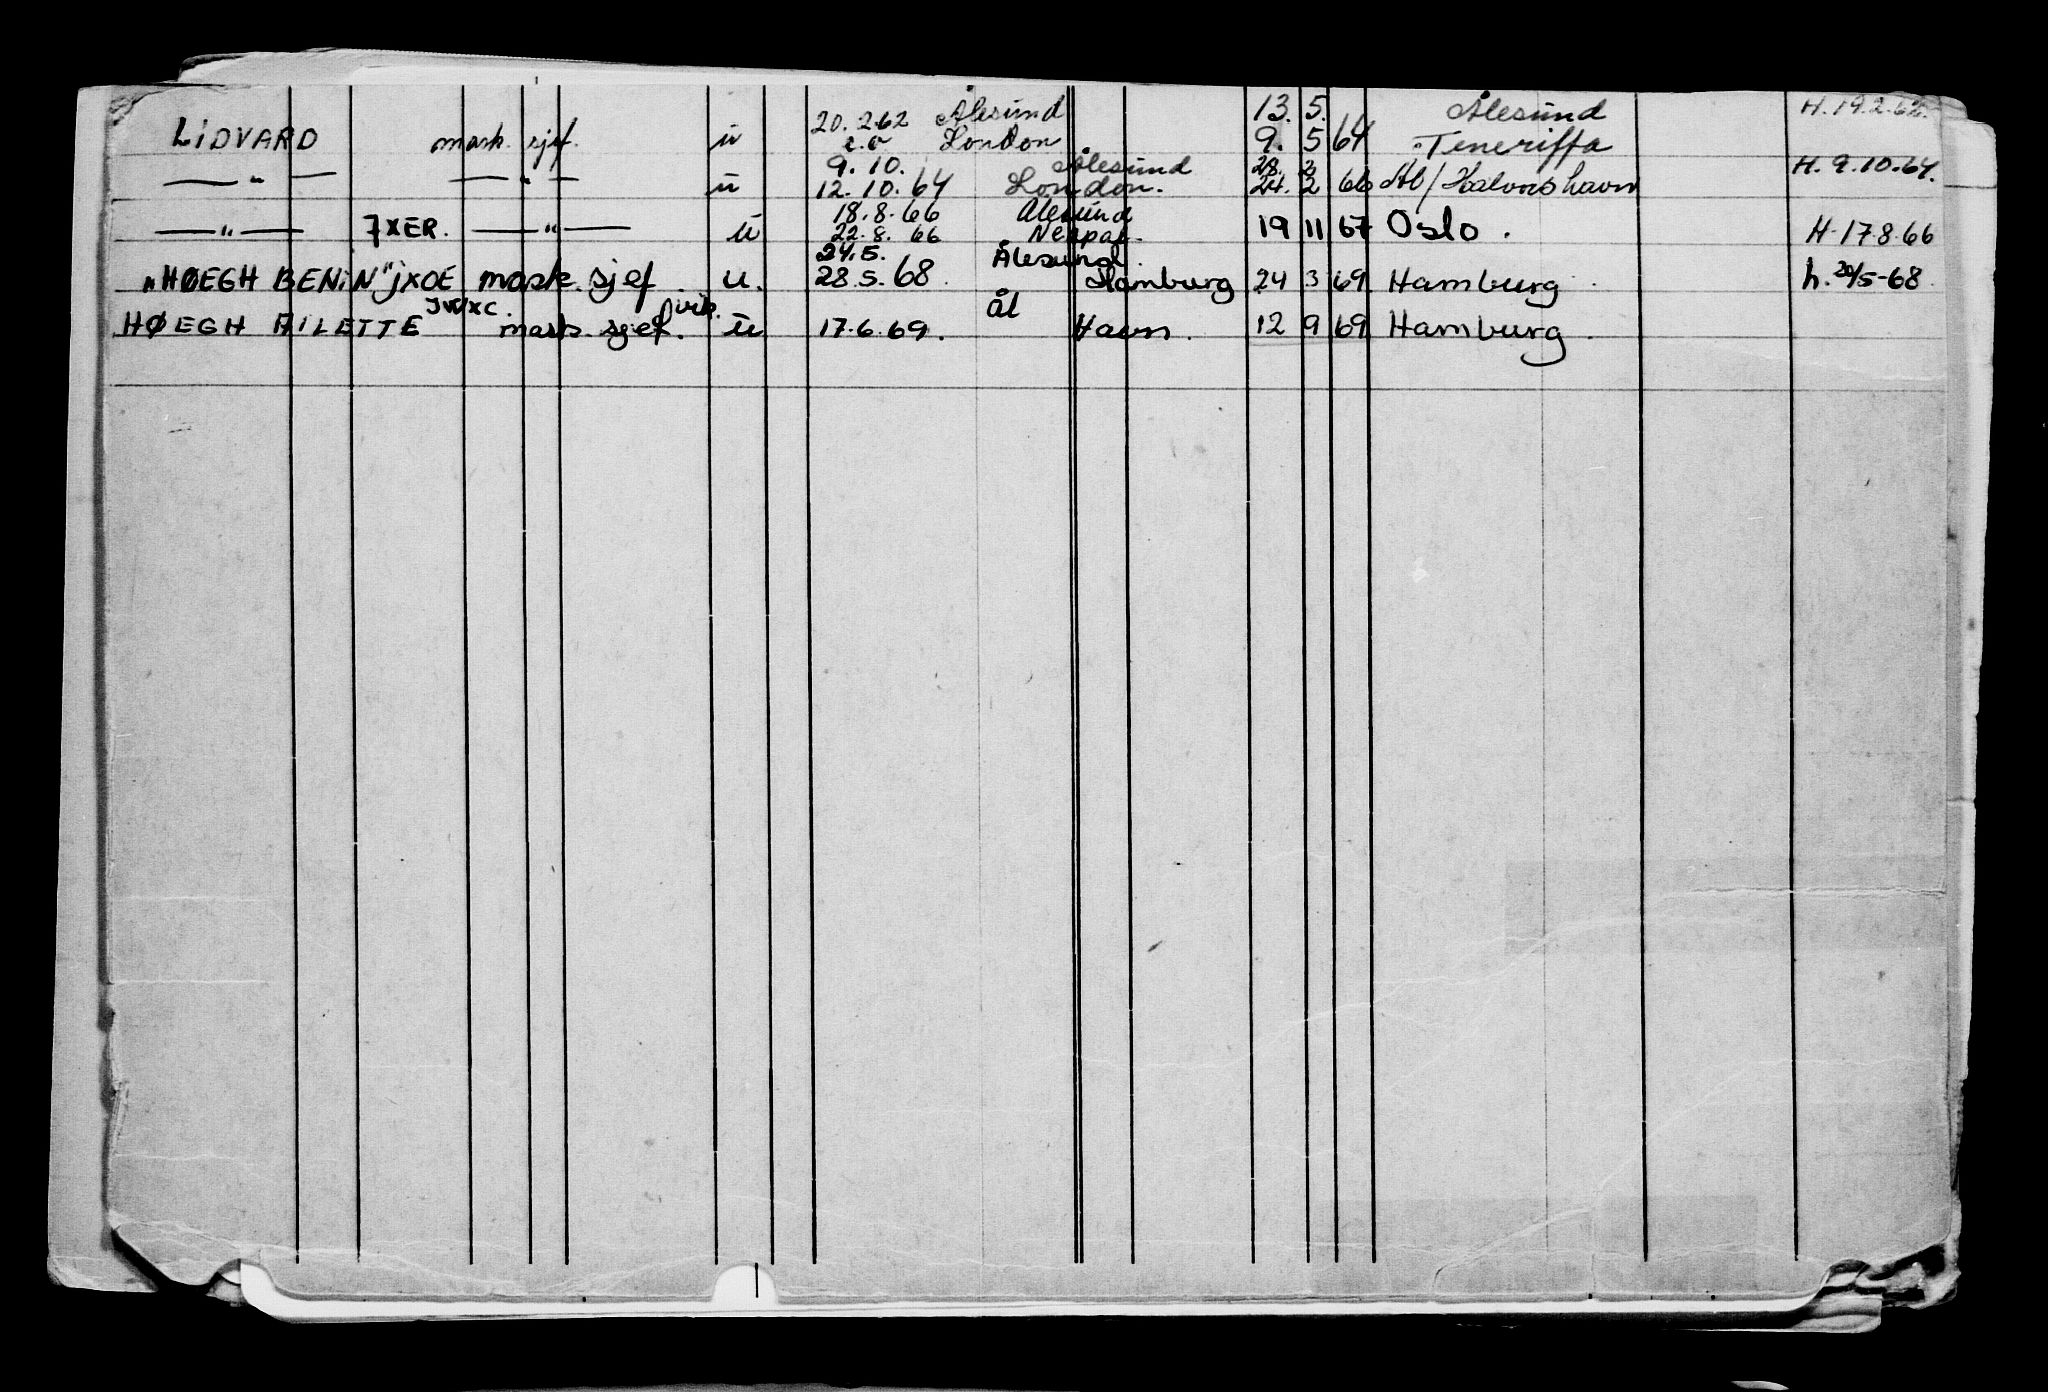 20. 2.62 Ålesund 13. 5. Ålesund H. 19.2.62.
LIDVARD mask. sjef. u London 9. 5 64 Teneriffa
9. 10. Ålesund 28. 2 H. 9.10.64.
— " — — " — u 12. 10. 64 London. 24. 2 66 Ål/
18.8.66 Ålesund
— " — JXER. — " — u 22. 8. 66 Neapel. 19 11 67 Oslo. H. 17.8.66
24.5. Ålesund.
"HØEGH BENIN" JXOE mask. sjef. u. 28.5.68. Hamburg 24 3 69 Hamburg. h. 20/5-68.
JWXC. Ål
HØEGH AILETTE mask. sjef. u 17.6.69. Havn. 12 9 69 Hamburg.